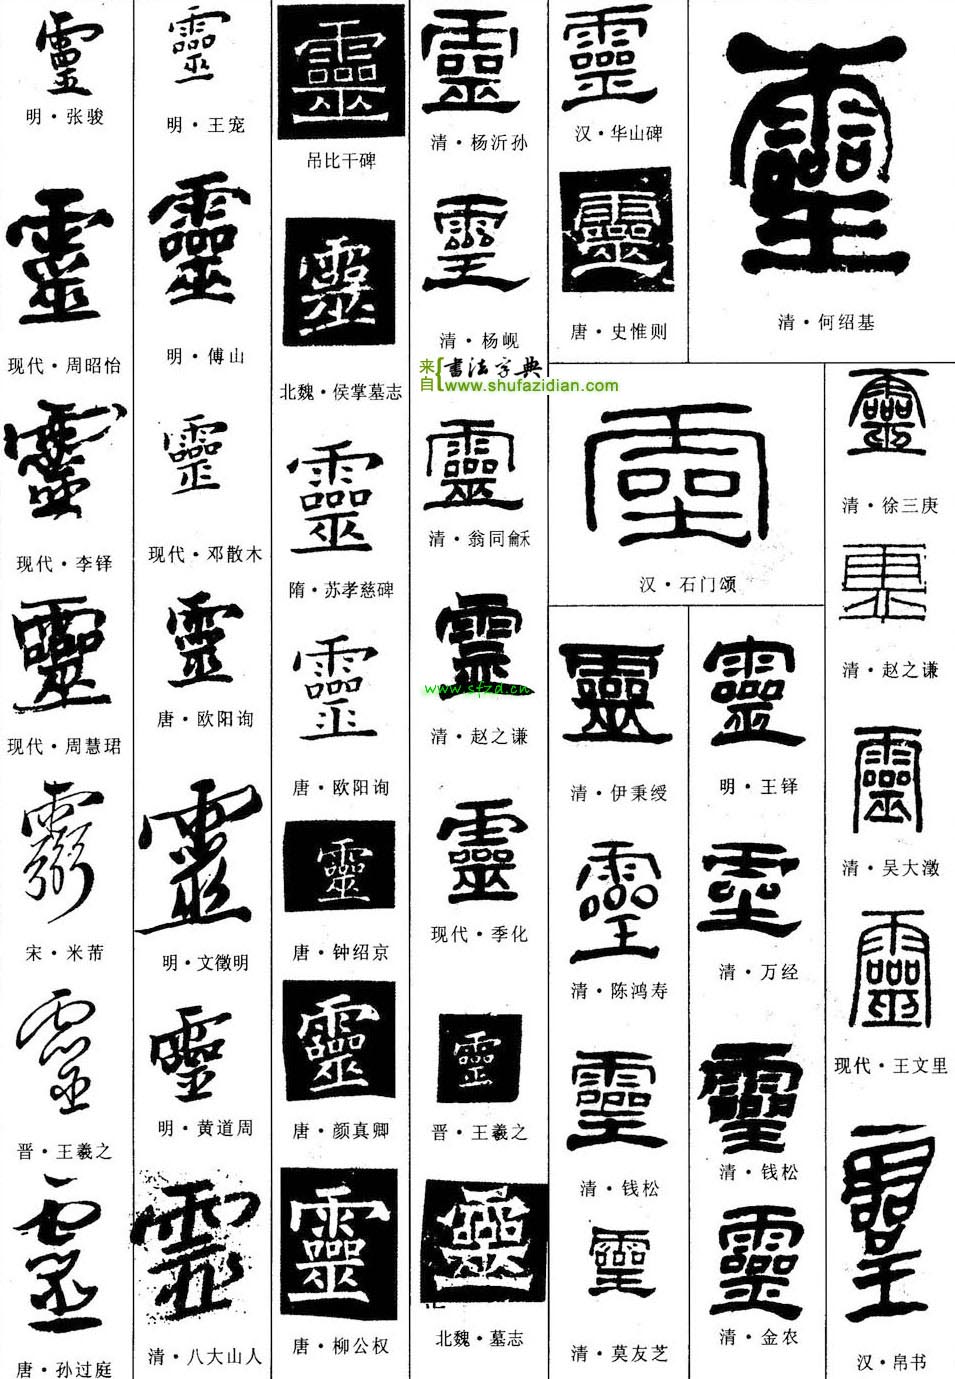 靈
明·张骏
靈
现代·周昭怡
靈
现代·李铎
靈
现代·周慧珺
靈
宋·米芾
靈
晋·王羲之
靈
唐·孙过庭
靈
明·王宠
靈
明·傅山
靈
现代·邓散木
靈
唐·欧阳询
靈
明·文徵明
靈
明·黄道周
靈
清·八大山人
靈
吊比干碑
靈
北魏·侯掌墓志
靈
隋·苏孝慈碑
靈
唐·欧阳询
靈
唐·钟绍京
靈
唐·颜真卿
靈
唐·柳公权
靈
清·杨沂孙
靈
清·杨岘
来自{书法字典
www.shufazidian.com
靈
清·翁同龢
靈
www.sfzd.cn
清·赵之谦
靈
现代·季化
靈
晋·王羲之
靈
北魏·墓志
靈
汉·华山碑
靈
唐·史惟则
靈
清·何绍基
靈
汉·石门颂
靈
清·伊秉绶
靈
清·陈鸿寿
靈
清·钱松
靈
清·莫友芝
靈
明·王铎
靈
清·万经
靈
清·钱松
靈
清·金农
靈
清·徐三庚
靈
清·赵之谦
靈
清·吴大澂
靈
现代·王文里
靈
汉·帛书